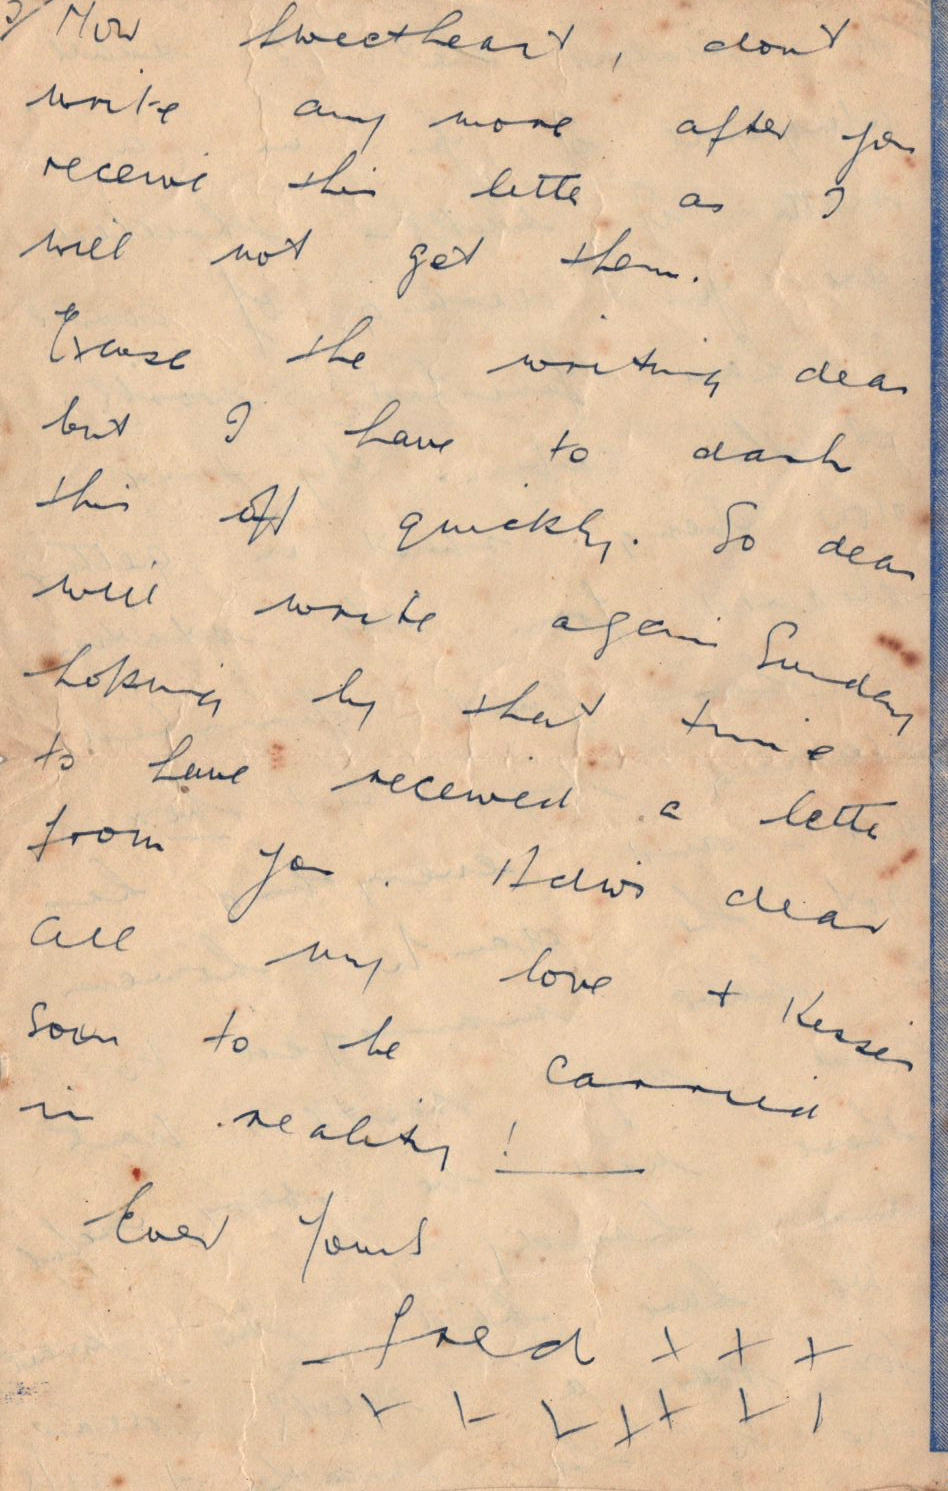 3/ Now Sweetheart, don't
write any more after you
receive this letter as I
will not get them.
Excuse the writing dear
but I have to dash
this off quickly. So dear
will write again Sunday
hoping by that time
to have received a letter
from you. Adios dear
all my love + Kisses
soon to be carried
in reality!
Ever Yours
Fred x x x
x x x x x x x